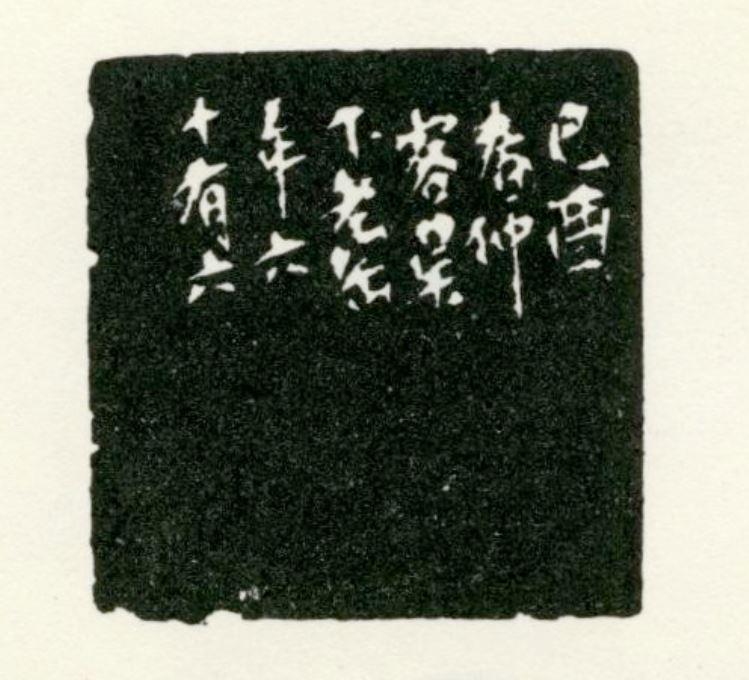 己酉
春仲
客吴
下老缶
年六
十有六